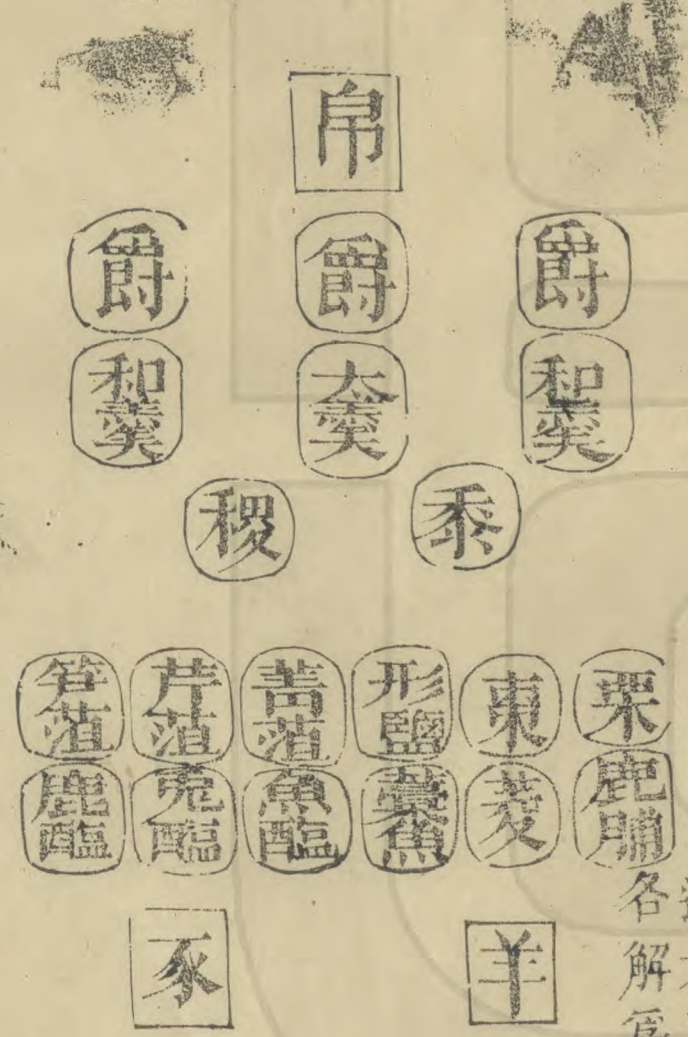 帛
爵 爵 爵
和羹 大羹 和羹
黍 稷
栗 棗 形鹽 菁菹 芹菹 笋菹
鹿脯 菱 藁魚 魚醢 兔醢 鹿醢
羊 豕
各解